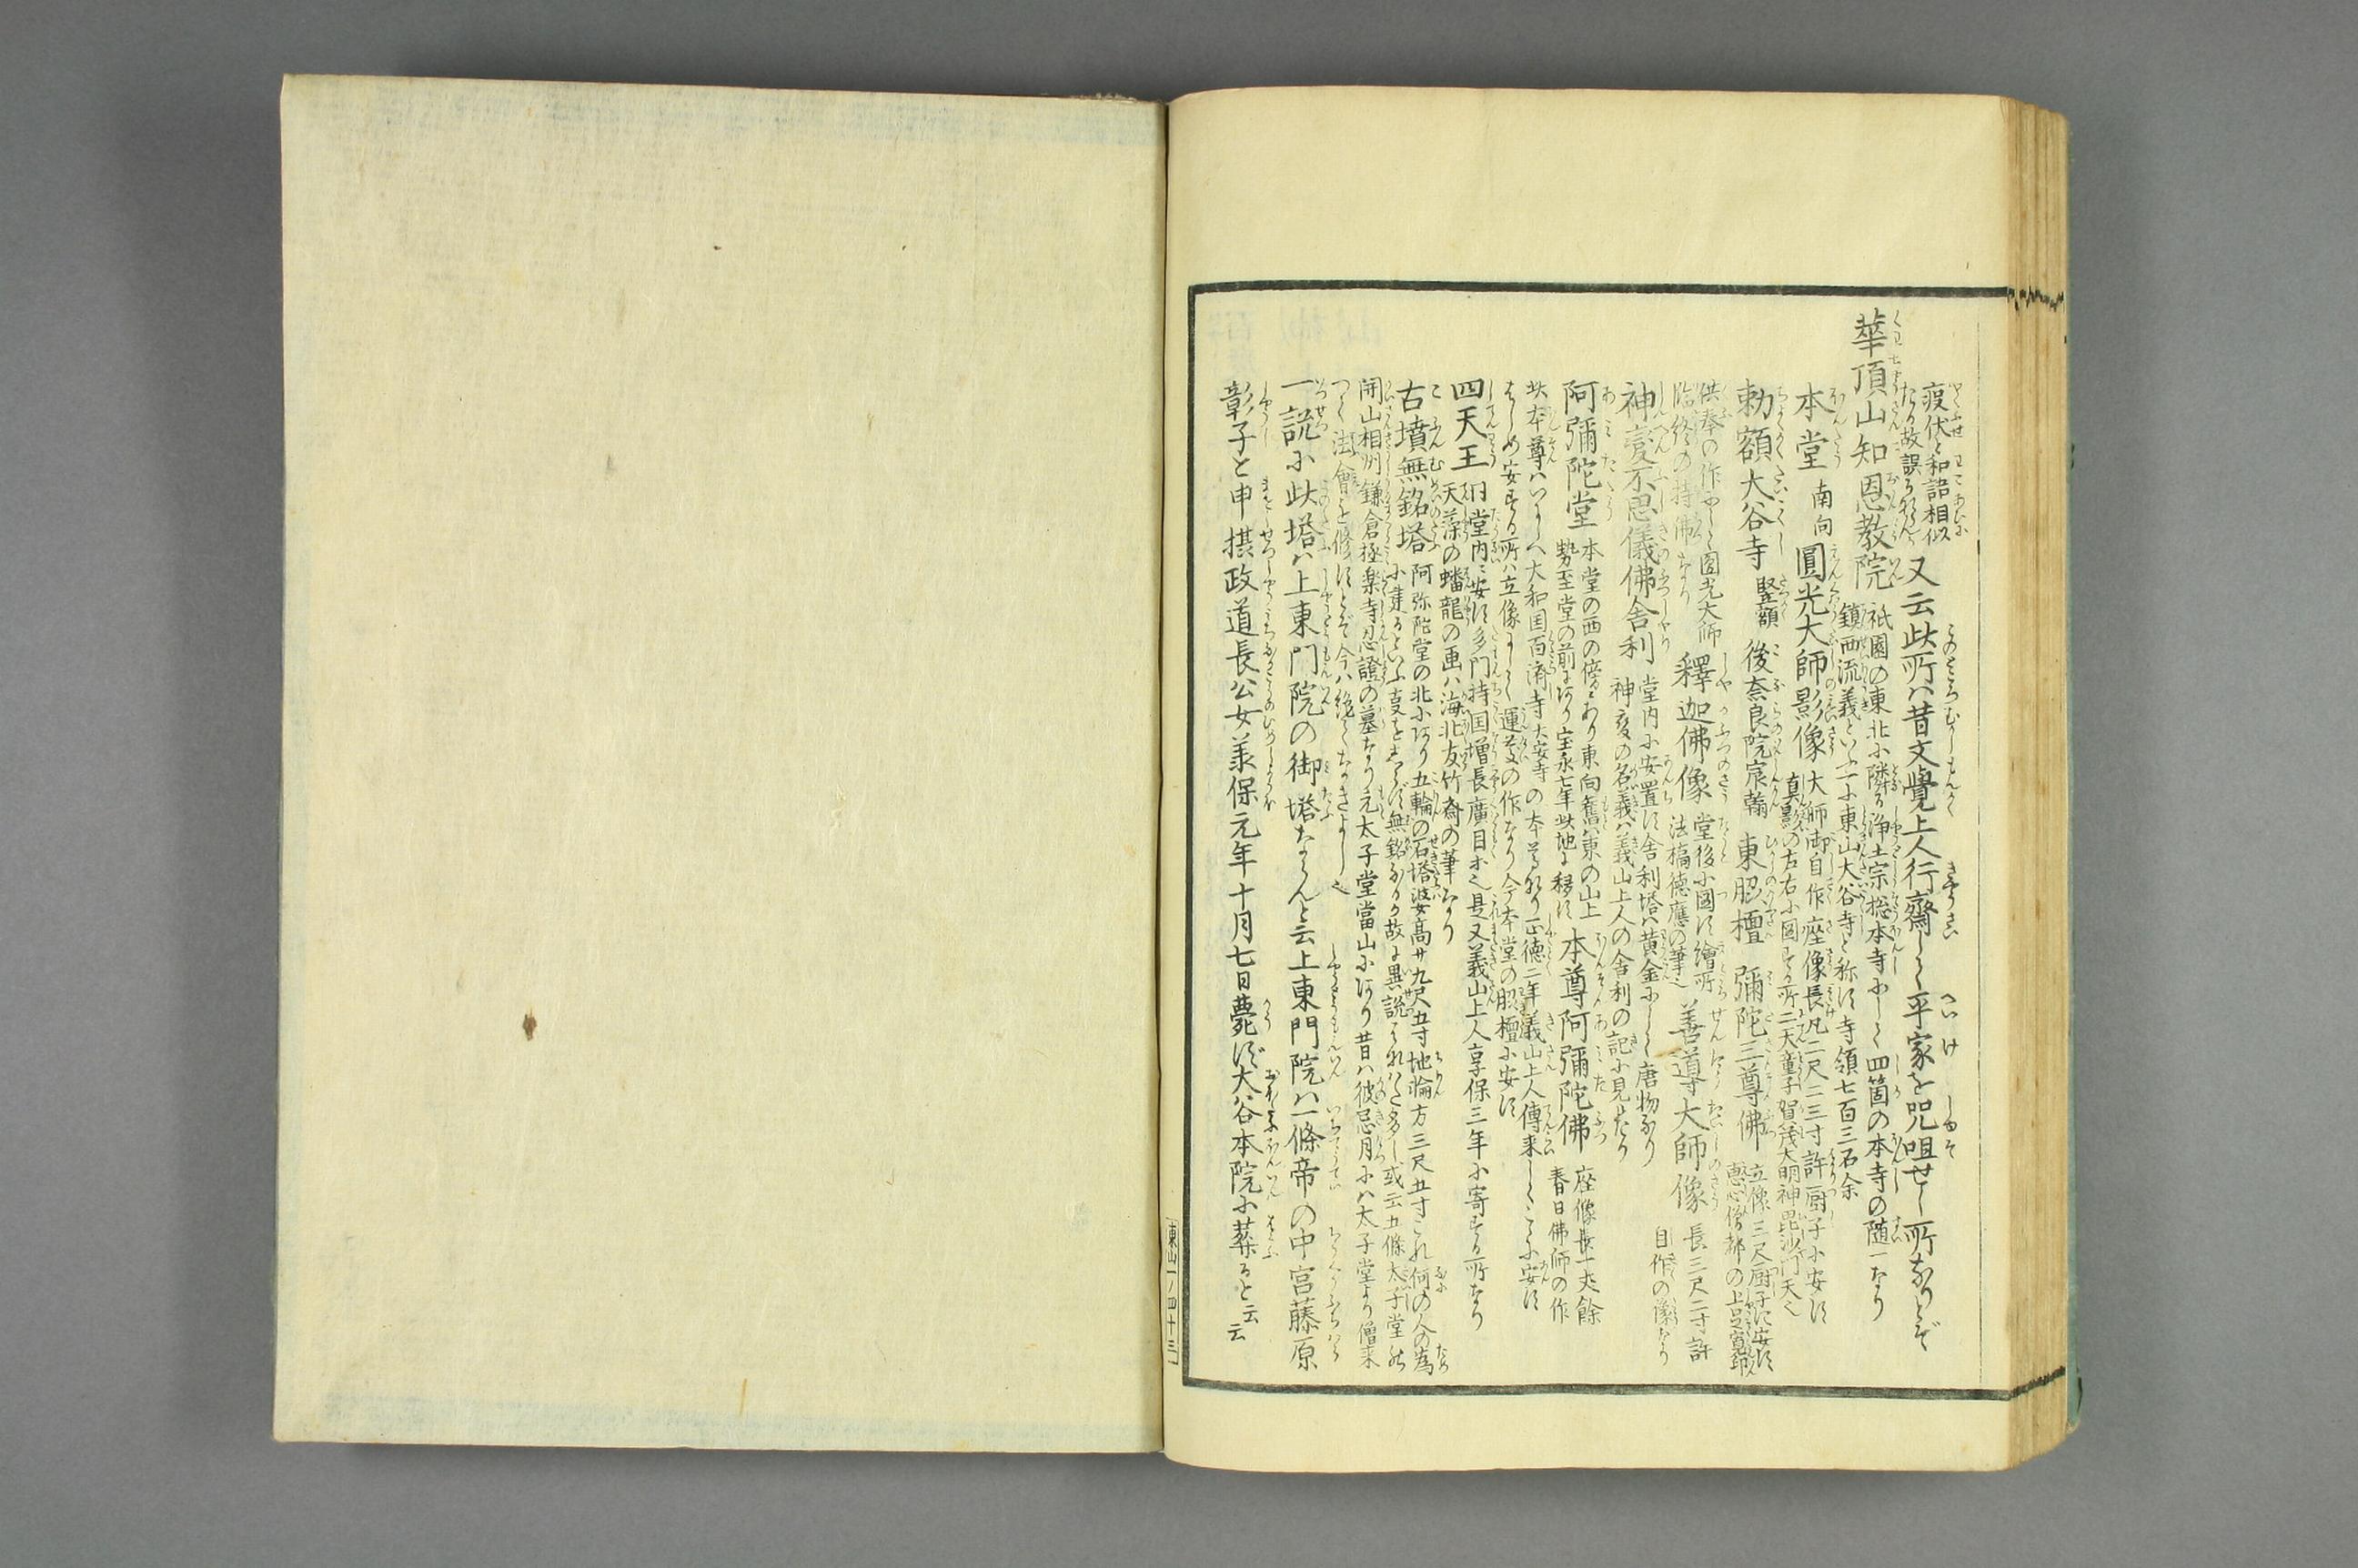 疫伏と和語相似
たる故誤るならん
又云此所ハ昔文覺上人行齋して平家を咒咀せし所なりとぞ
華頂山知恩教院
祇園の東北に隣る浄土宗總本寺にして四箇の本寺の随一なり
鎮西流義といふ一に東山大谷寺と称す寺領七百三石余
本堂
南向
圓光大師影像
大師御自作座像長凡二尺二三寸許厨子に安す
真影の左右に圖する所二天童子賀茂大明神毘沙門天也
勅額大谷寺
竪額
後奈良院宸翰
東脇檀
彌陀三尊佛
立像三尺厨子に安す
恵心僧都の作
臨終の持佛なり
圓光大師
釋迦佛像
堂後に圖す繪所
法橋徳應の筆也
善導大師像
長三尺二寸許
自作の像なり
神變不思儀佛舎利
堂内に安置す舎利塔ハ黄金にして唐物なり
神変の名義ハ義山上人の舎利の記に見へたり
阿彌陀堂
本堂の西の傍にあり東向舊ハ東の山上
勢至堂の前にあり宝永七年此地に移す
本尊阿彌陀佛
座像長一丈餘
春日佛師の作
此本尊ハいにしへ大和国百濟寺大安寺の本尊なり正徳二年義山上人傳来してこゝに安す
はじめ安する所ハ立像にして運慶の作なり今本堂の脇檀に安す
四天王
同堂内ニ安す多門持国増長廣目等也是又義山上人享保三年に寄する所なり
天藻の蟠龍の画ハ海北友竹齋の筆なり
古墳無銘塔
阿弥陀堂の北にあり五輪の石塔婆高サ九尺五寸地輪方三尺五寸これ何の人の為
に建るといふ事をしらず無銘なるか故に異説まちまち多し或云五條太子堂の
開山相州鎌倉極楽寺忍證の墓なり元太子堂當山にあり昔ハ彼忌月にハ太子堂より僧来
つて法會を修すとぞ今ハ絶てなきよし也
一説に此塔ハ上東門院の御塔ならんと云上東門院ハ一條帝の中宮藤原
彰子と申摂政道長公女兼保元年十月七日薨ず大谷本院に葬ると云云
東山一ノ四十三